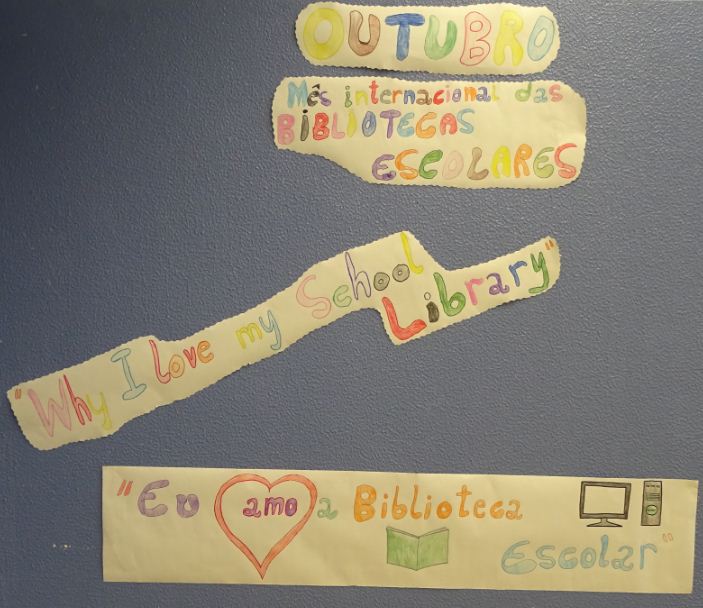 OUTUBRO
Mês internacional das
BIBLIOTECAS
ESCOLARES
"Why I love my School
Library"
"Eu amo a Biblioteca
Escolar"